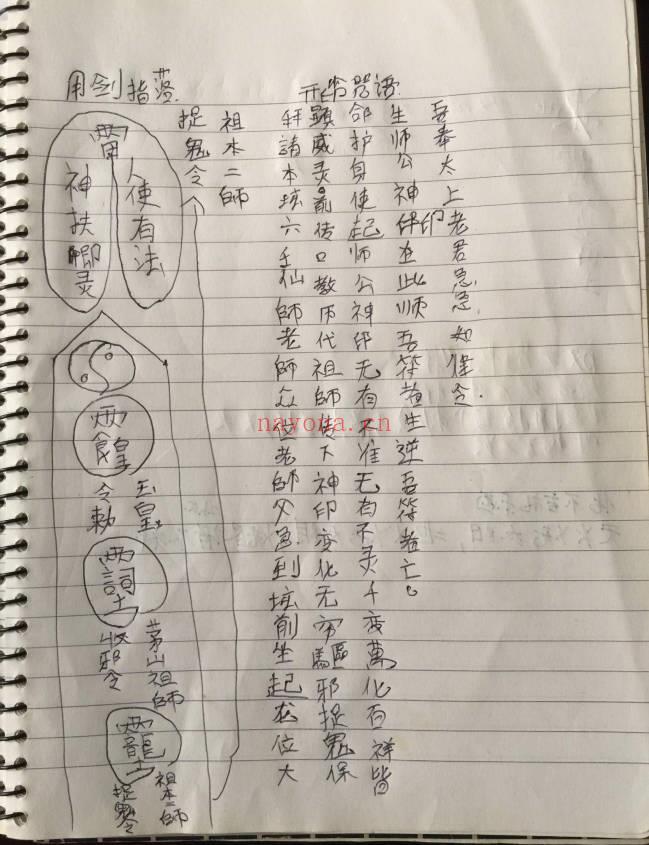 用剑指落
开符咒语
拜請本坛六壬仙師老師众位老師父邑到坛前生起龙位大
顕威灵親传口教历代祖師传下神印变化无穷驅邪捉鬼保
命护身使起师公神印无有不准无有不灵千变萬化百祥皆
生师公神印在此顺吾符者生逆吾符者亡。
吾奉太上老君急急如律令.
祖本二師
捉鬼令
人使有法
神扶灵
玉皇
令勅
茅山祖師
收邪令
祖本二師
捉令
nayona.cn